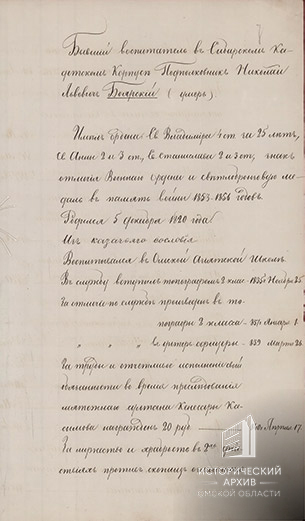 Бывший воспитатель в Сибирском Ка-
детском Корпусе Подполковник Николай
Львович Боярский (умер).
Имел ордена: Св. Владимира 4 ст. за 25 лет,
Св. Анны 2 и 3 ст., Св. Станислава 2 и 3 ст., знак
отличия Военного Ордена и светлобронзовую ме-
даль в память войны 1853-1856 годов.
Родился 5 декабря 1820 года.
Из казачьего сословия
Воспитывался в Омской Азиатской Школе.
В службу вступил топографом 2 класса 1835 г. Ноября 25.
За отличие по службе произведен в то-
пографы 1837 Января 1.
" " " в унтер-офицеры - 1839 Марта 26.
За труды и отчетливое исполнение
обязанности во время преследования
мятежного султана Кенесары Ка-
сымова награжден 20 руб. Апреля 17.
За мужество и храбрость в 2-х
против скопищ
ИСТОРИЧЕСКИЙ
АРХИВ
ОМСКОЙ ОБЛАСТИ